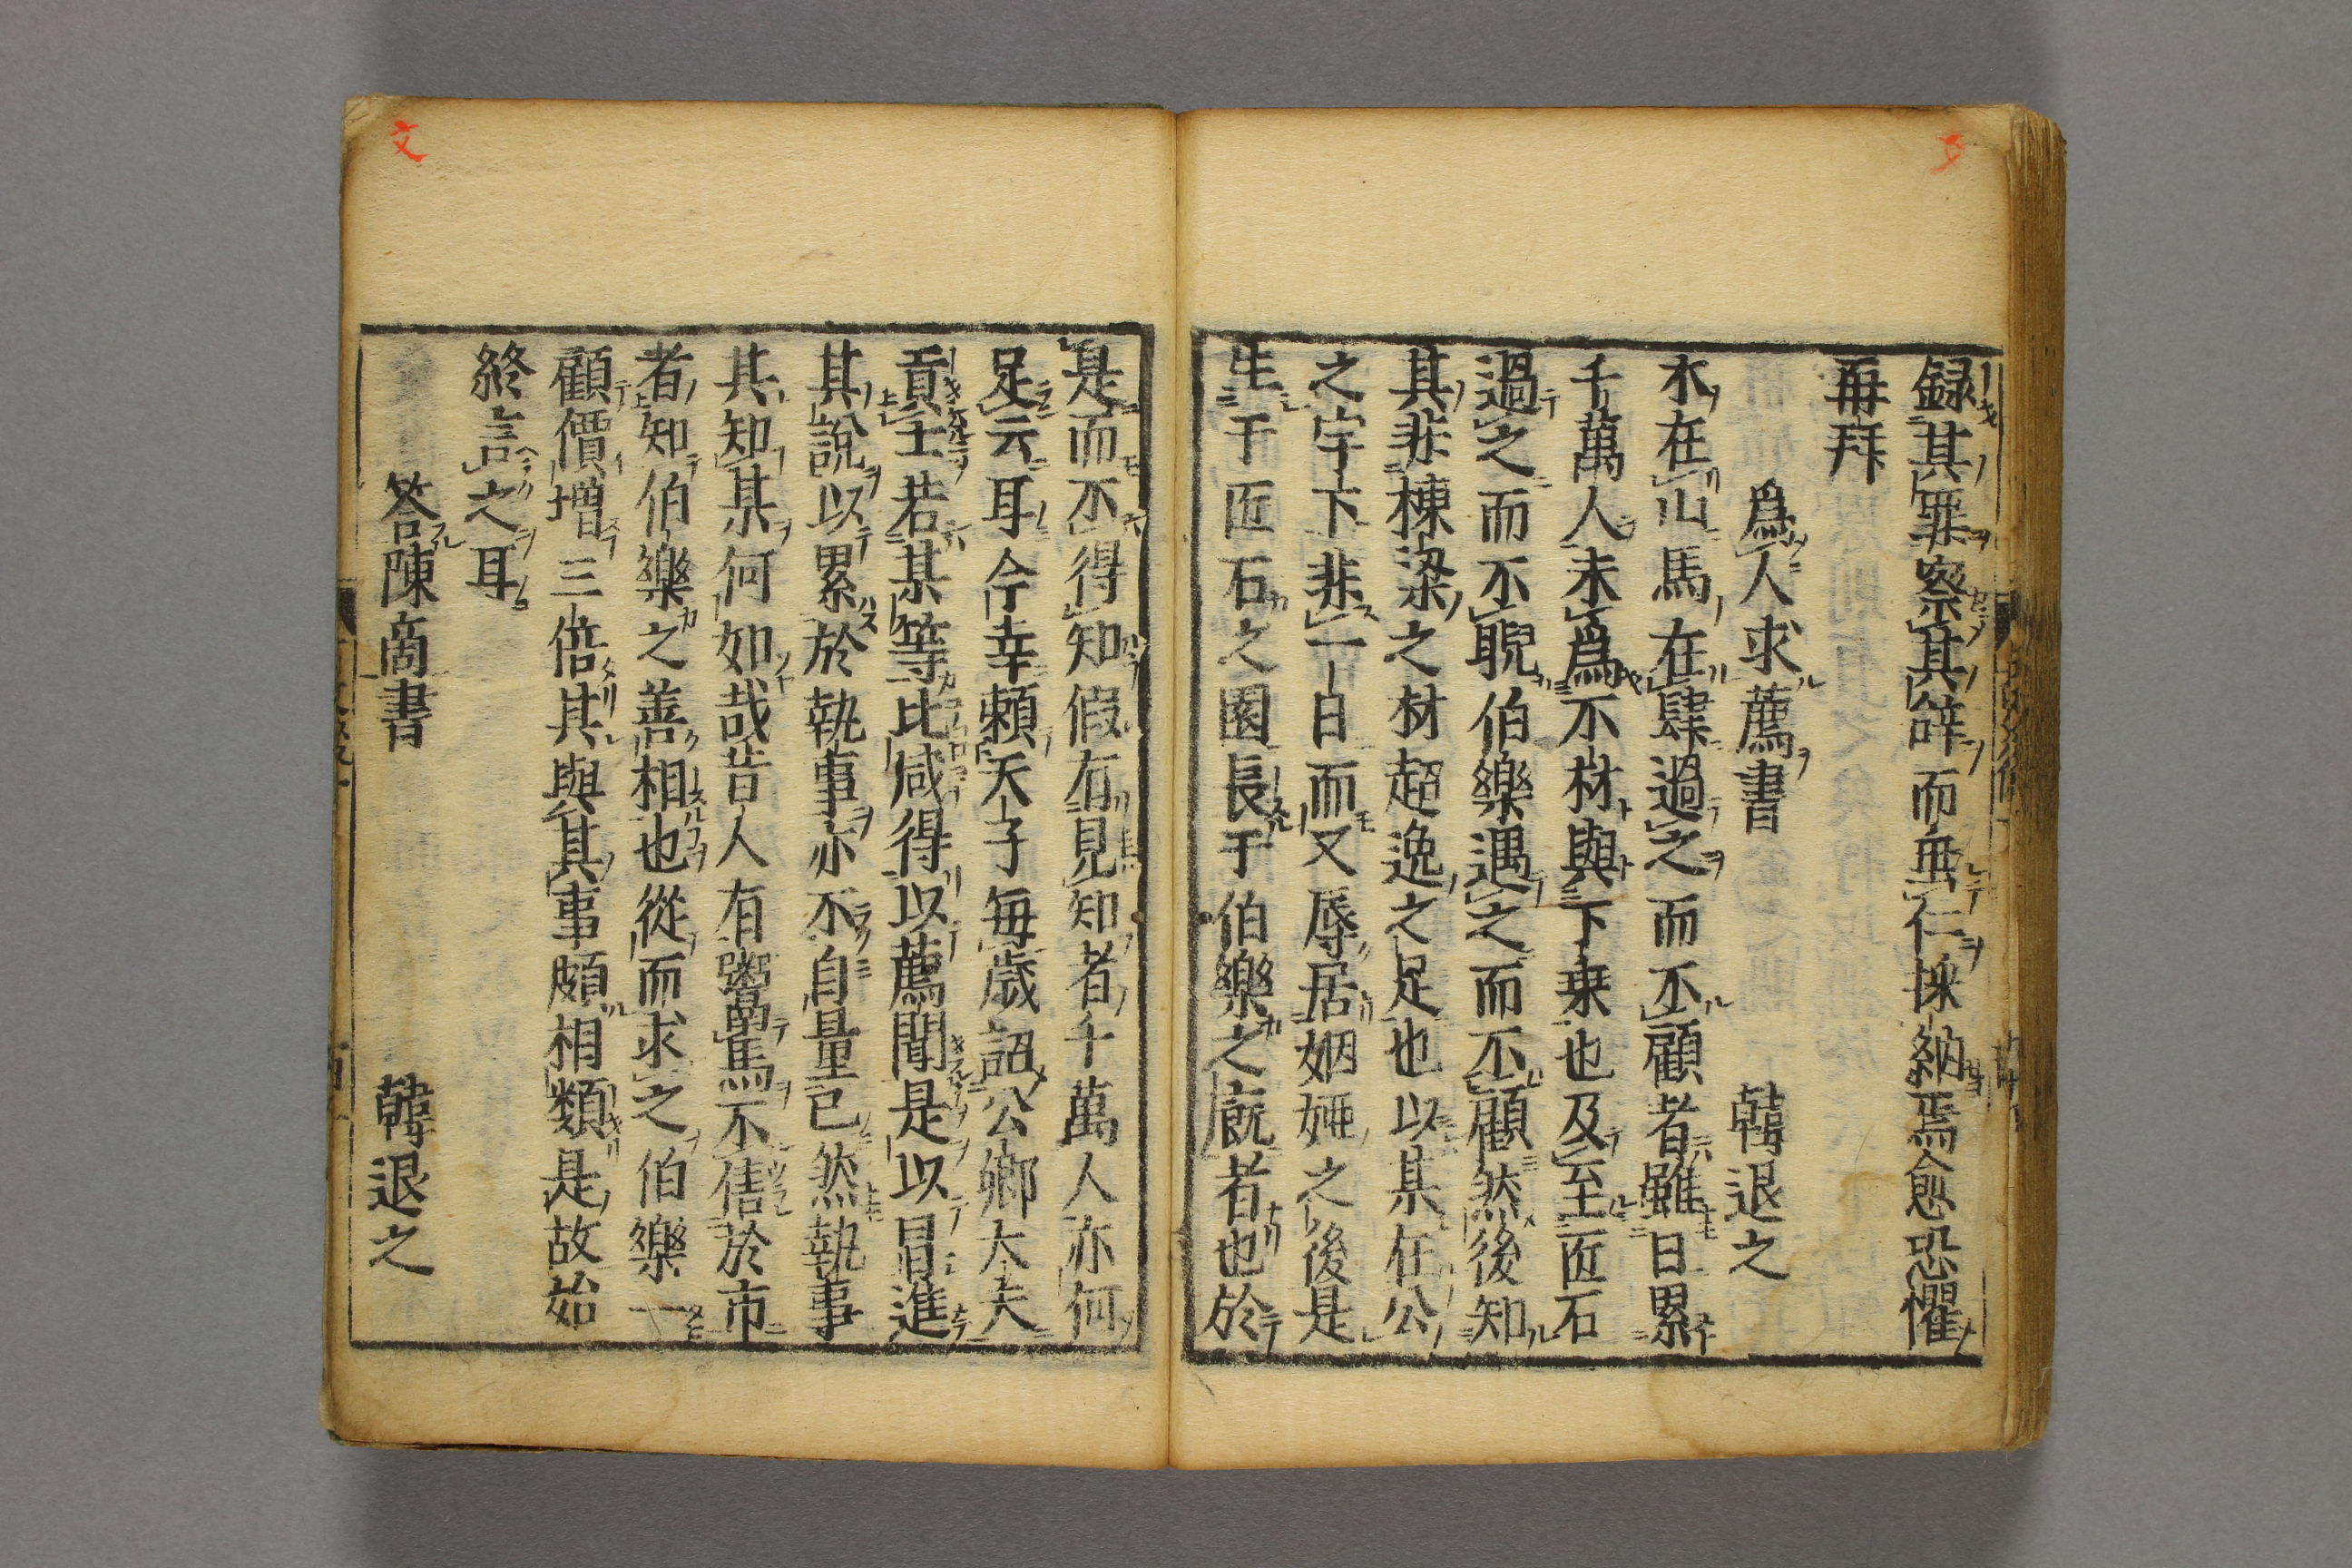 文
録其罪察其辞而垂仁採納焉愈恐懼
再拜
爲人求薦書　韓退之
木在山馬在肆過之而不顧者雖日累
千萬人未爲不材與下乗也及至匠石
過之而不睨伯樂遇之而不顧然後知
其非棟梁之材超逸之足也以某在公
之宇下非一日而又辱居姻婭之後是
生于匠石之園長于伯樂之廐者也於
文
是而不得知假有見知者千萬人亦何
足云耳今幸頼天子毎歳詔公卿大夫
貢士若某等比咸得以薦聞是以冒進
其說以累於執事亦不自量已然執事
其知某何如哉昔人有鬻馬不售於市
者知伯樂之善相也從而求之伯樂一
顧價増三倍某與其事頗相類是故始
終言之耳
答陳商書　韓退之